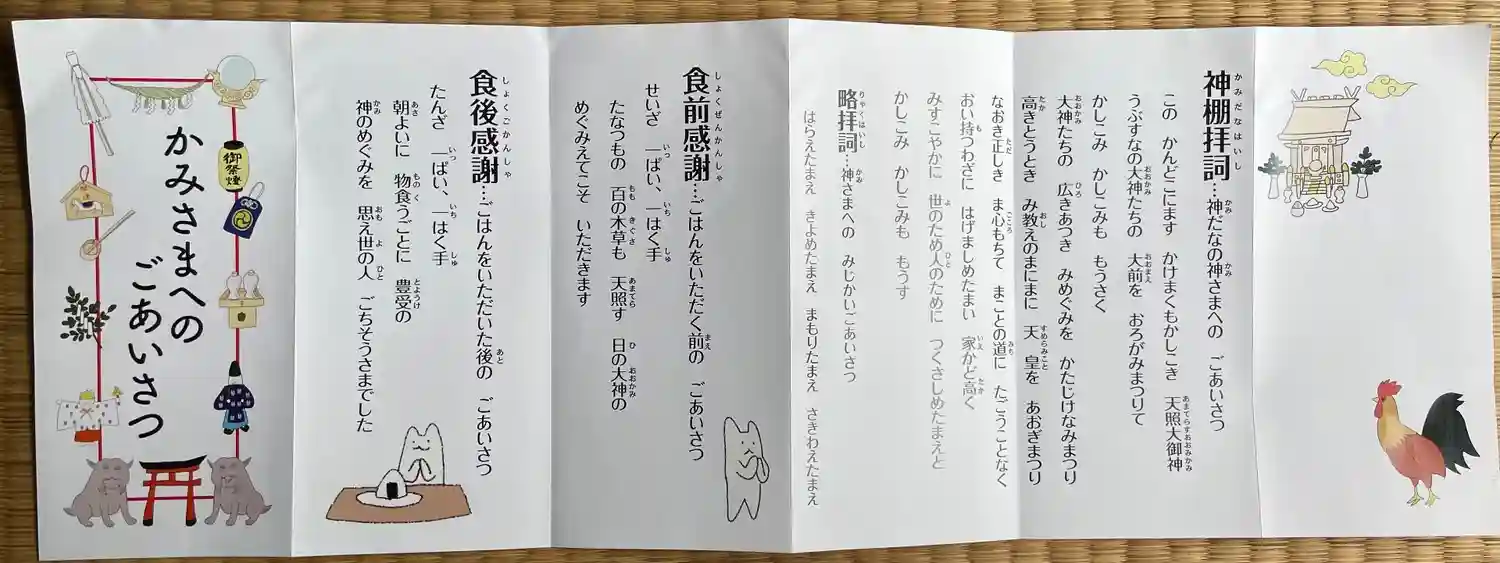 神棚拝詞…神だなの神さまへの ごあいさつ
この かんどこにます かけまくもかしこき 天照大御神
うぶすなの大神たちの 大前を おろがみまつりて
かしこみ かしこみも もうさく
大神たちの 広きあつき みめぐみを かたじけなみまつり
高きとうとき み教えのまにまに 天皇を あおぎまつり
なおき正しき ま心もちて まことの道に たごうことなく
おい持つわざに はげましめたまい 家かど高く
みすこやかに 世のため人のために つくさしめたまえと
かしこみ かしこみも もうす
略拝詞…神さまへの みじかいごあいさつ
はらえたまえ きよめたまえ まもりたまえ さきわえたまえ
食前感謝…ごはんをいただく前の ごあいさつ
せいざ 一ぱい、一はく手
たなつもの 百の木草も 天照す 日の大神の
めぐみえてこそ いただきます
食後感謝…ごはんをいただいた後の ごあいさつ
たんざ 一ぱい、一はく手
朝よいに 物食うごとに 豊受の
神のめぐみを 思え世の人 ごちそうさまでした
かみさまへの
ごあいさつ
御祭燈